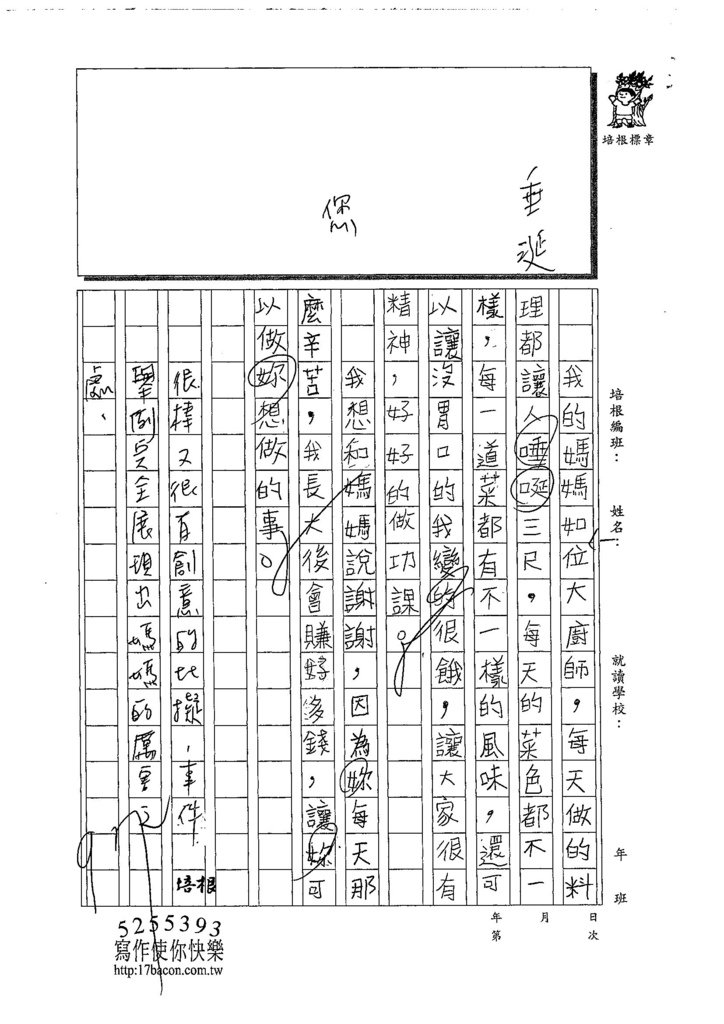 培根標章
垂涎
您
培根編班：
姓名：
就讀學校：
年 班
年 月 日
第 次
我的媽媽如位大廚師，每天做的料
理都讓人唾唌三尺，每天的菜色都不一
樣，每一道菜都有不一樣的風味，還可
以讓沒胃口的我變的很餓，讓大家很有
精神，好好的做功課。
我想和媽媽說謝謝，因為妳每天那
麼辛苦，我長大後會賺好多錢，讓妳可
以做妳想做的事。
很棒又很有創意的比擬，事件
舉例完全展現出媽媽的厲害之
處、
培根
5255393
寫作使你快樂
http:17bacon.com.tw